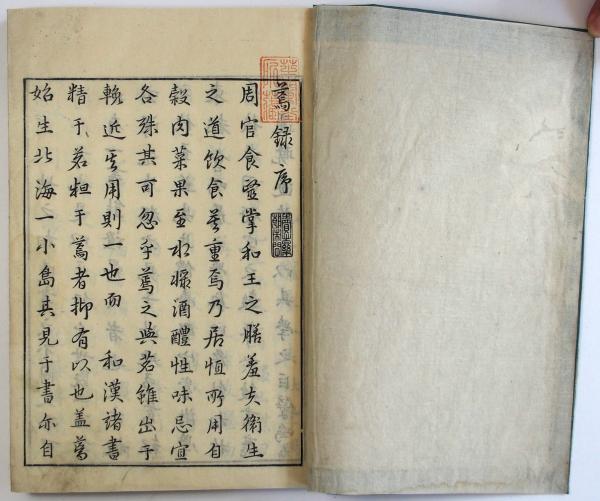 蔫録序
周官食醫掌和王之膳羞夫衛生
之道飲食莫重焉乃居恒所用自
穀肉菜果至水漿酒醴性味忌宜
各殊其可忽乎蔫之與茗雖出于
輓近其用則一也而 和漢諸書
精于茗粗于蔫者抑有以也蓋蔫
始生北海一小島其見于書亦自